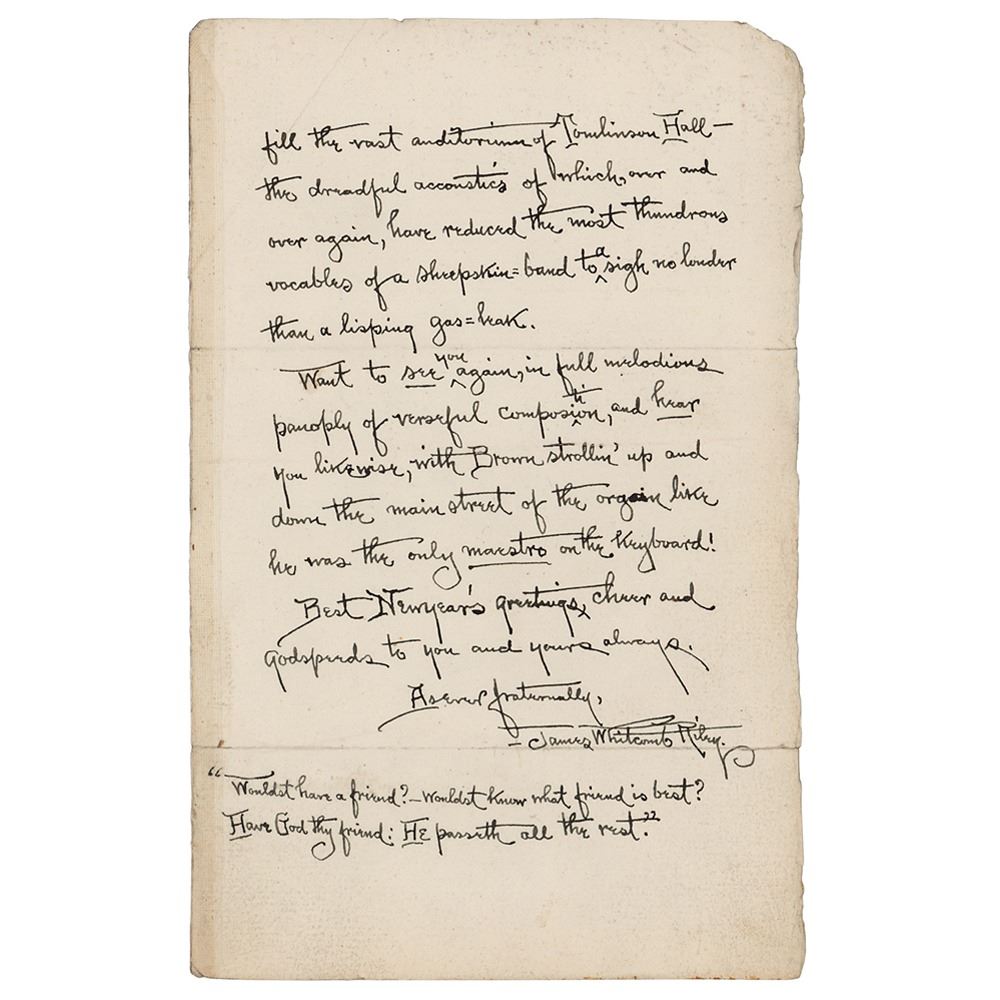 fill the vast auditorium of Tomlinson Hall—
the dreadful accoustics of which, over and
over again, have reduced the most thundrous
vocables of a sheepskin=band to a sigh no louder
than a lisping gas=leak.
Want to see you again, in full melodious
panoply of verseful composition, and hear
you likewise, with Brown strollin' up and
down the main street of the organ like
he was the only maestro on the Keyboard!
Best Newyear's greetings, cheer and
Godspeeds to you and yours always.
As ever fraternally,
– James Whitcomb Riley.
"Wouldst have a friend?—Wouldst know what friend is best?
Have God thy friend: HE passeth all the rest."